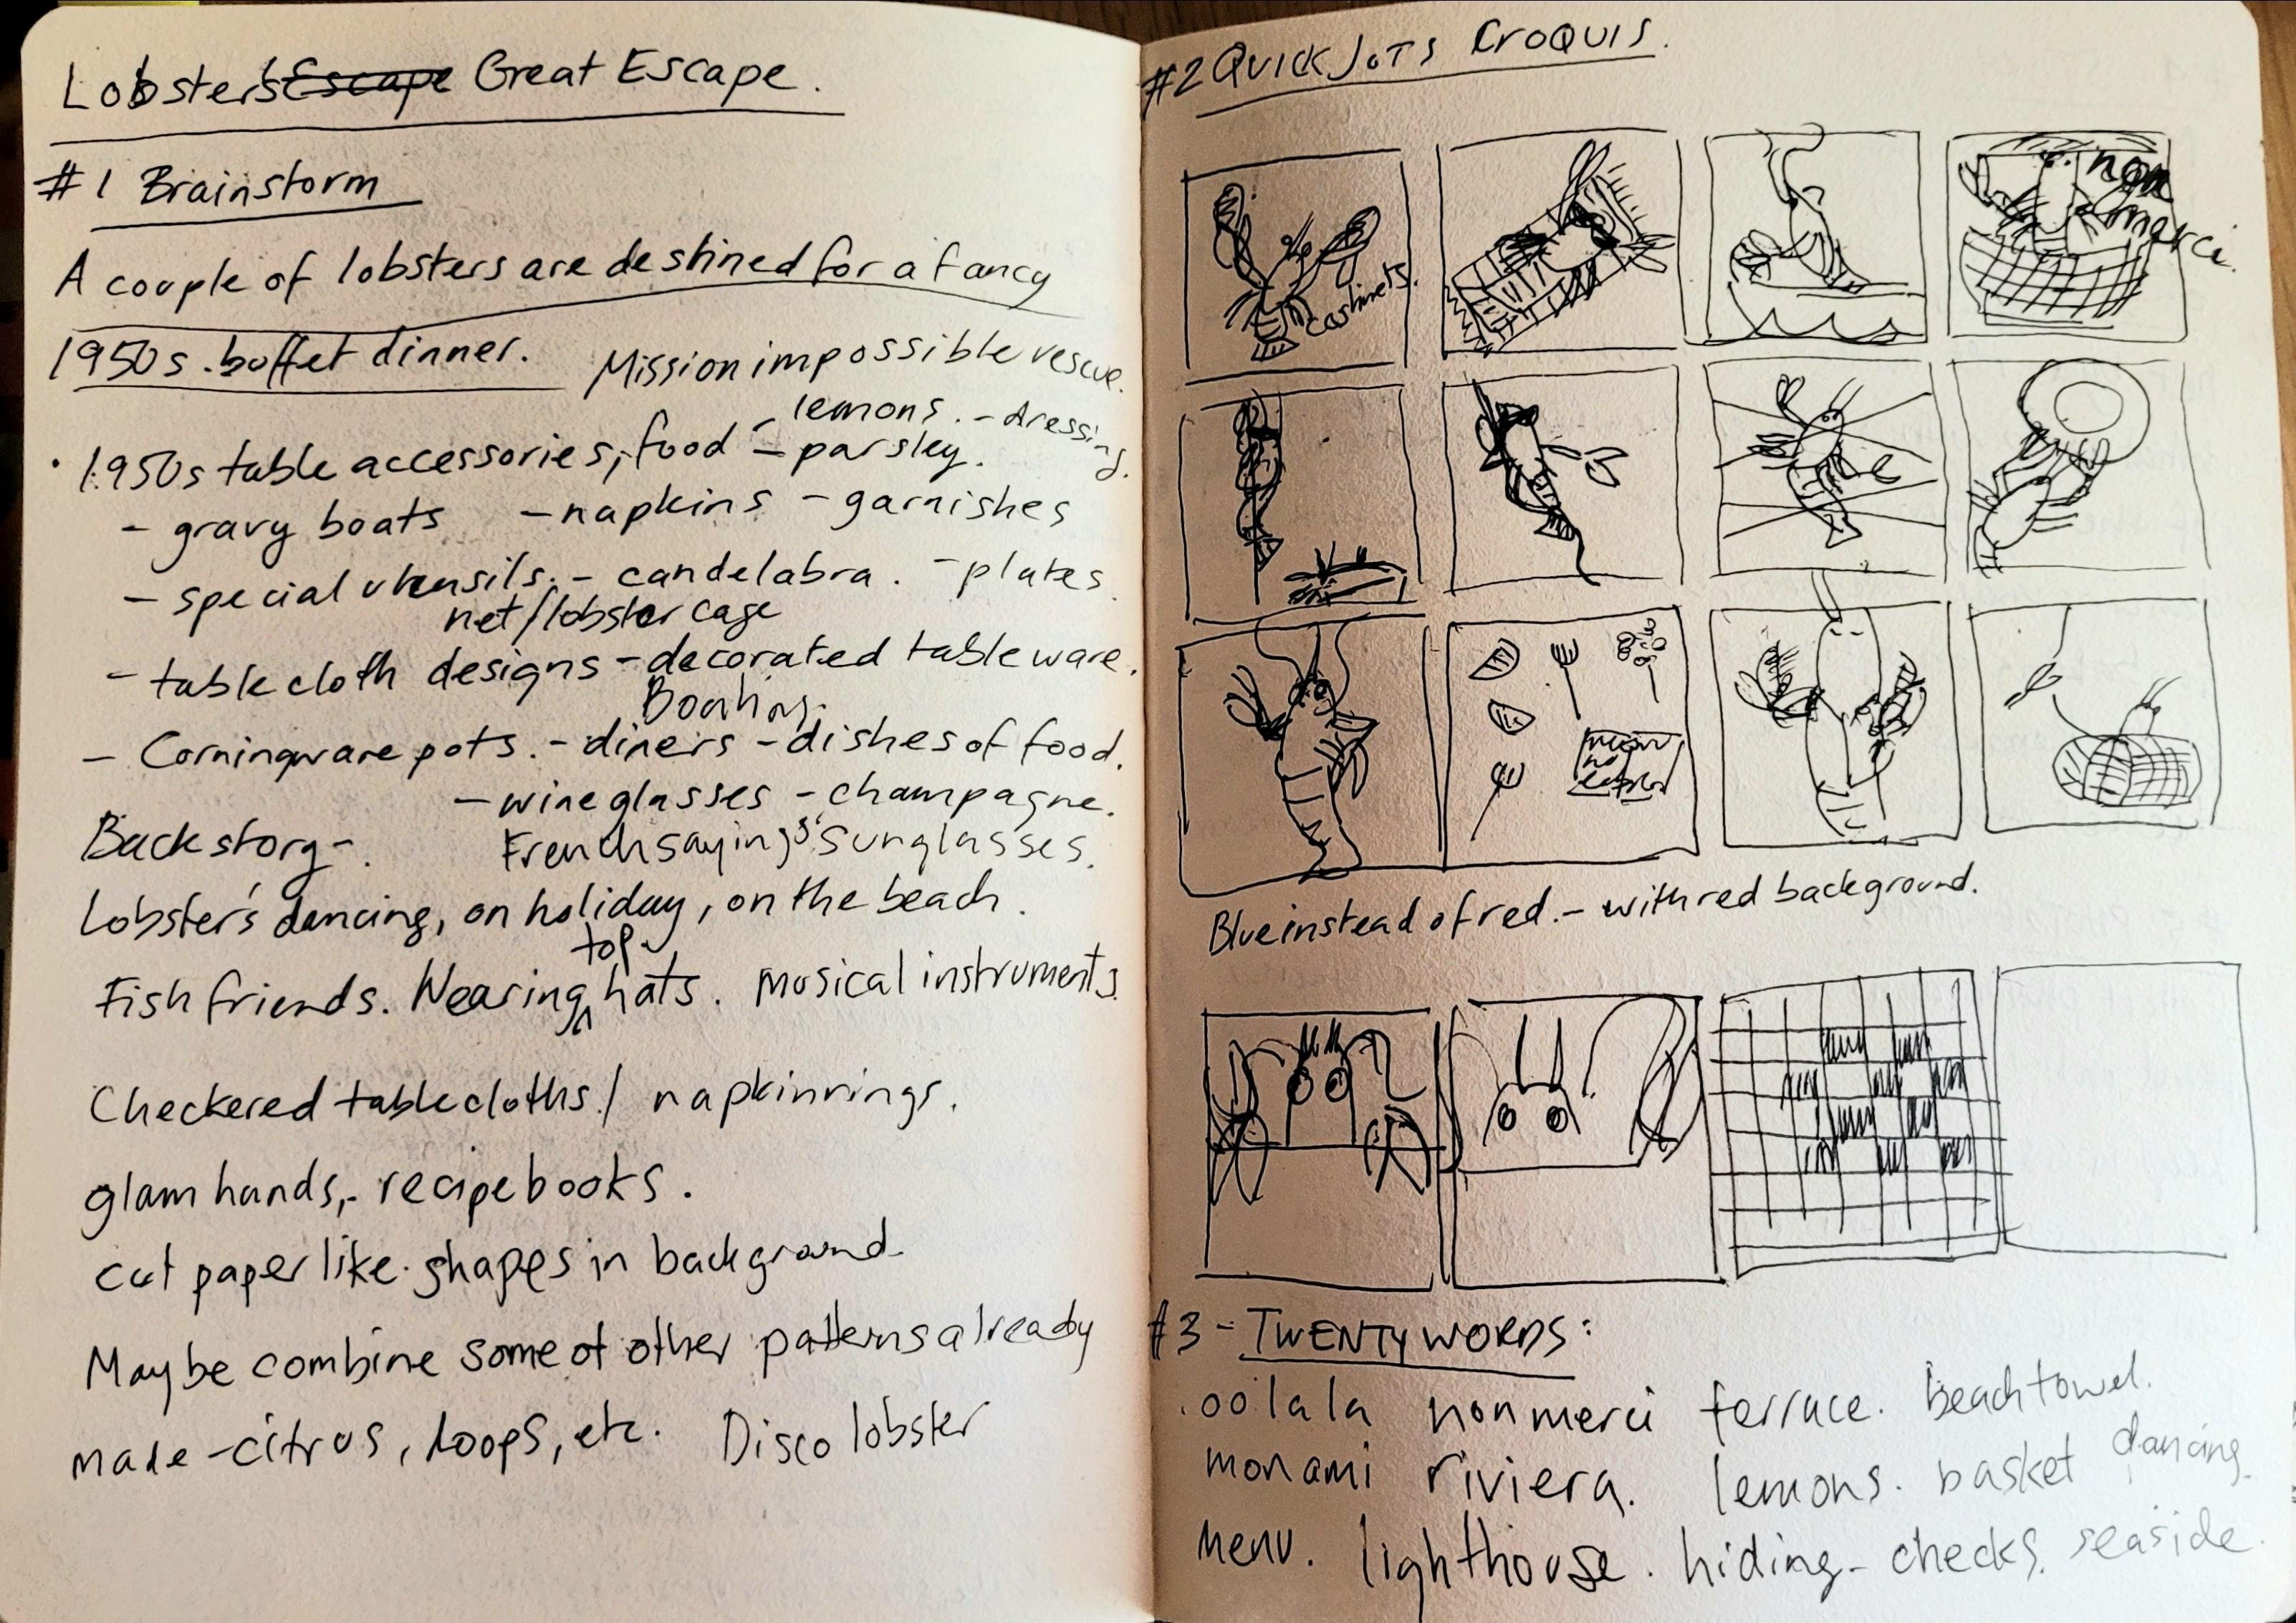 Lobsters Escape Great Escape.
#1 Brainstorm
A couple of lobsters are destined for a fancy
1950s buffet dinner. Mission impossible rescue.
- lemons. - dressing.
• 1950s table accessories, food - parsley.
- gravy boats - napkins - garnishes
- special utensils. - candelabra. - plates.
net/lobster cage
- table cloth designs - decorated tableware.
Boating.
- Corningware pots. - diners - dishes of food.
- wine glasses - champagne.
Backstory -. French sayings sunglasses.
Lobster's dancing, on holiday, on the beach.
top
Fish friends. Wearing hats. Musical instruments.
Checkered tablecloths / napkin rings.
glam hands, - recipe books.
cut paper like shapes in background.
Maybe combine some of other patterns already
made - citrus, loops, etc. Disco lobster
#2 QUICK JOTS CROQUIS.
non
merci.
Blue instead of red. - with red background.
#3 - TWENTY WORDS:
oo la la non merci terrace. beach towel.
mon ami riviera. lemons. basket dancing.
menu. lighthouse. hiding - checks. seaside.